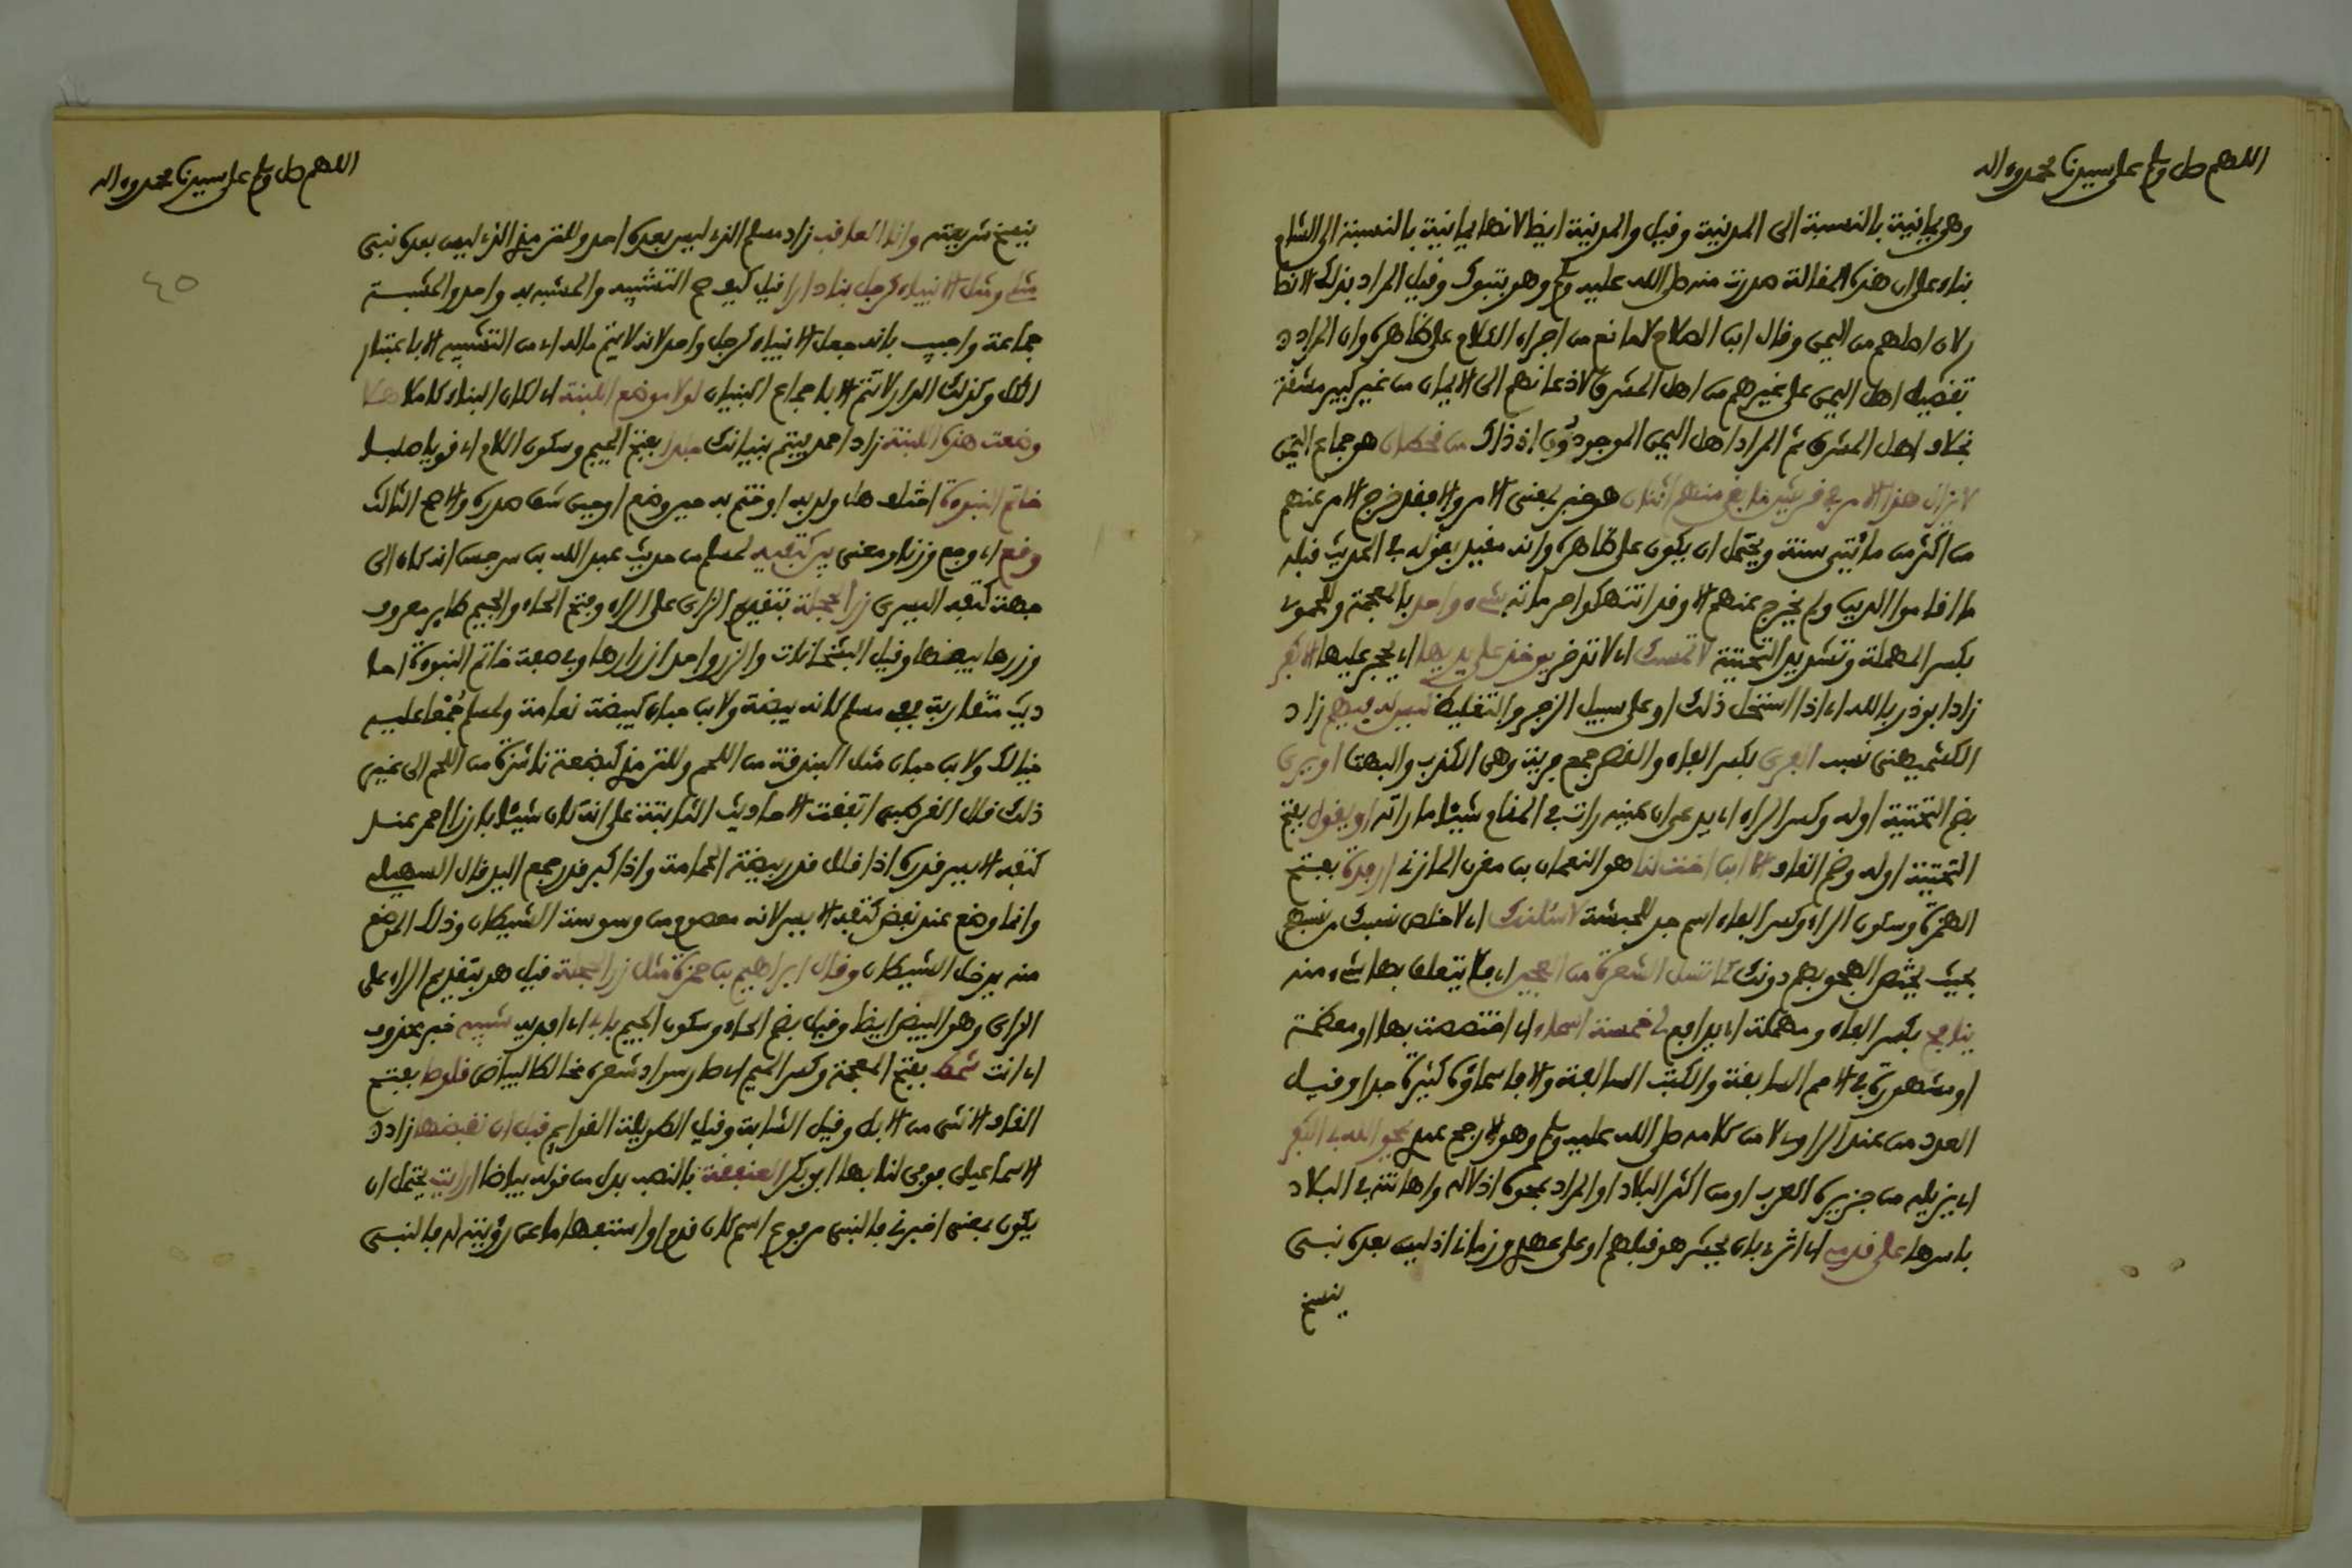 اللهم صل وسلم على سيدنا محمد وءاله
وهو يمانية بالنسبة الى المدينة وفيل والمدينة ايضا لانها يمانية بالنسبة الى الشام
بناء على ان هذه المفالة صدرت منه صلى الله عليه وسلم وهو بتبوك وفيل المراد بذلك الانصا
ر لان اصلهم من اليمن وفال ابن الصلاح لا مانع من اجراء الكلام على ظاهره وان المراد
تفضيل اهل اليمن على غيرهم من اهل المشرق لاذعانهم الى الايمان من غير كبير مشفة
بخلاف اهل المشرق ثم المراد اهل اليمن الموجودون اذ ذاك من فحطان هو جماع اليمن
لا يزال هذا الامر في فريش ما بفي منهم اثنان هو خبر بمعنى الامر والا بفد خرج الامر عنهم
من اكثر من مائتي سنة ويحتمل ان يكون على ظاهره وانه مفيد بفوله في الحديث فبله
ما افاموا الدين ولم يخرج عنهم الا وفد انتهكوا حرماته شيء واحد بالمعجمة وللحموي
بكسر المهملة وتشديد التحتية لا تمسك اي لا تدخر يوخذ على يديها اي يحجر عليها الا كفر
زاد ابو ذر بالله اي اذا استحل ذلك او على سبيل الزجر والتغليظ ليس له فيهم زاد
الكشميهني نسب الفرى بكسر الفاء والفصر جمع فرية وهي الكذب والبهت او يري
بضم التحتية اوله وكسر الراء اي يدعي ان عينيه رات في المنام شيئا ما راته او يفول بفتح
التحتية اوله وضم الفاف الا ابن اخت لنا هو النعمان بن مفرن المازني ارفدة بفتح
الهمزة وسكون الراء وكسر الفاء اسم جد للحبشة لاسلنك اي لاخلص نسبك من نسبهم
بحيث يختص الهجو بهم دونك كما تسل الشعرة من العجين اي فلا يتعلق بها شيء منه
ينافح بكسر الفاء ومهملة اي يدافع لي خمسة اسماء اي اختصصت بها او معظمة
او مشهورة في الامم السابفة والكتب السالفة والا فاسماؤه كثيرة جدا وفيل
العدد من عند الراوي لا من كلامه صلى الله عليه وسلم وهو الارجح عندي يمحو الله بي الكفر
اي يزيله من جزيرة العرب او من اكثر البلاد او المراد بمحوه اذلاله واهانته في البلاد
باسرها على فدمي اي اثري بان يحشر هو فبلهم او على عهدي وزماني اذ ليس بعدي نبي
ينسخ
اللهم صل وسلم على سيدنا محمد وءاله
٤٥
ينسخ شريعته وانا العافب زاد مسلم الذي ليس بعده احد وللترمذي الذي ليس بعده نبي
مثلي ومثل الانبياء كرجل بنا دارا فيل كيف صح التشبيه والمشبه به واحد والمشبه
جماعة واجيب بانه جعل الانبياء كرجل واحد لانه لا يتم ما اراد من التشبيه الا باعتبار
الكل وكذلك الدار لا تتم الا باجماع البنيان لولا موضع اللبنة اي لكان البناء كاملا هلا
وضعت هذه اللبنة زاد احمد بيتم بنيانك جلدا بفتح الجيم وسكون اللام اي فويا صلبا
خاتم النبوة اختلف هل ولد به او ختم به حين وضع او حين شق صدره والاصح الثالث
وفع اي وجع وزنا ومعنى بين كتفيه لمسلم من حديث عبد الله بن سرجس انه كان الى
جهة كتفه اليسرى زر الحجلة بتفديم الزاي على الراء وفتح الحاء والجيم طاير معروف
وزرها بيضها وفيل البشخانات والزر واحد ازرارها وفي صفة خاتم النبوة احا
ديث متفاربة ففي مسلم كانه بيضة ولابن حبان كبيضة نعامة ولمسلم جمعا عليه
خيلان ولابن حبان مثل البندفة من اللحم وللترمذي كبضعة ناشزة من اللحم الى غير
ذلك فال الفرطبي اتففت الاحاديث الثابتة على انه كان شيئا بارزا احمر عند
كتفه الايسر فدره اذا فلل فدر بيضة الحمامة واذا كبر فدر جمع اليد فال السهيلي
وانما وضع عند نغض كتفه الايسر لانه معصوم من وسوسة الشيطان وذلك الموضع
منه يدخل الشيطان وفال ابراهيم بن حمزة مثل زر الحجلة فيل هو بتفديم الراء على
الزاي وهو البيض ايضا وفيل بضم الحاء وسكون الجيم بابي اي افديه شبيه خبر محذوف
اي انت شمط بفتح المعجمة وكسر الميم اي صار سواد شعره مخالطا لبياض فلوصا بفتح
الفاف الانثى من الابل وفيل الشابة وفيل الطويلة الفوايم فبل ان نفبضها زاد
الاسماعيلي فوفى لنا بها ابو بكر العنففة بالنصب بدل من فوله بياضا ارايت يحتمل ان
يكون بمعنى اخبرني فالنبي مرفوع اسم كان فدم او استفهاما عن رؤيته له فالنبي